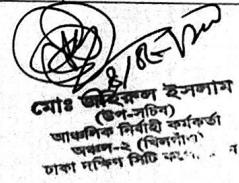 মোঃ জহিরুল ইসলাম
(উপ-সচিব)
আঞ্চলিক নির্বাহী কর্মকর্তা
অঞ্চল-২ (খিলগাঁও)
ঢাকা দক্ষিণ সিটি